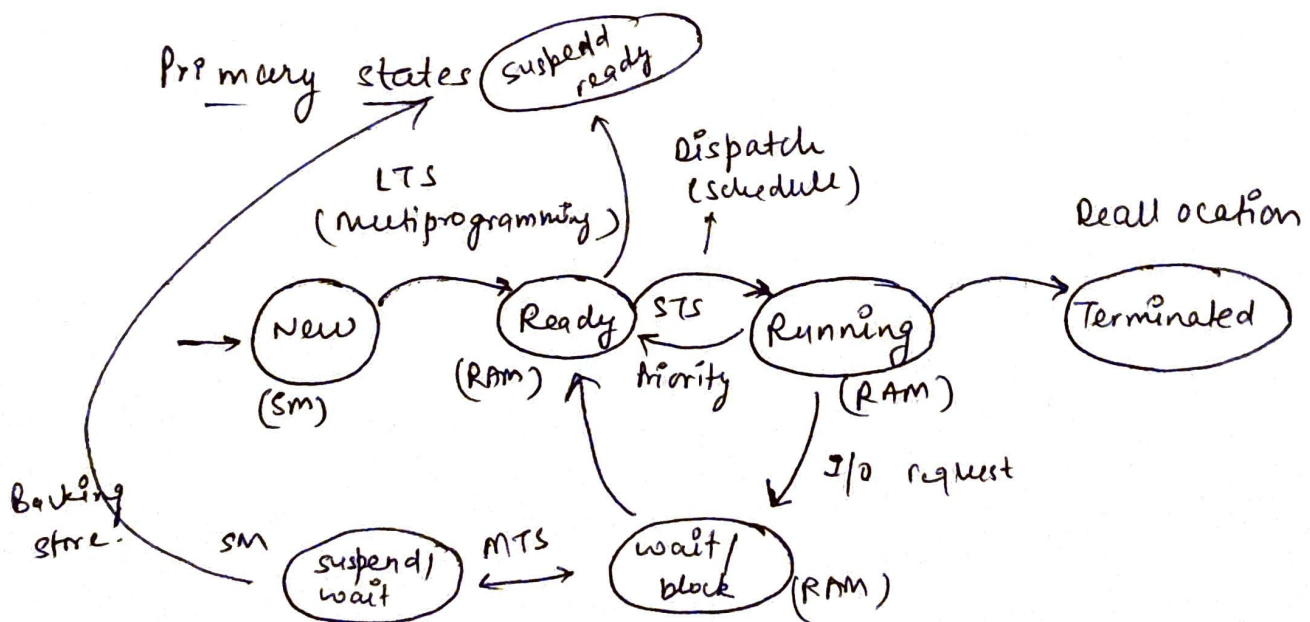 Primary states
suspend
ready
LTS
(Multiprogramming)
Dispatch
(schedule)
Deallocation
New
(SM)
Ready
(RAM)
STS
Priority
Running
(RAM)
Terminated
I/O request
Backing
store.
SM
suspend/
wait
MTS
wait/
block
(RAM)